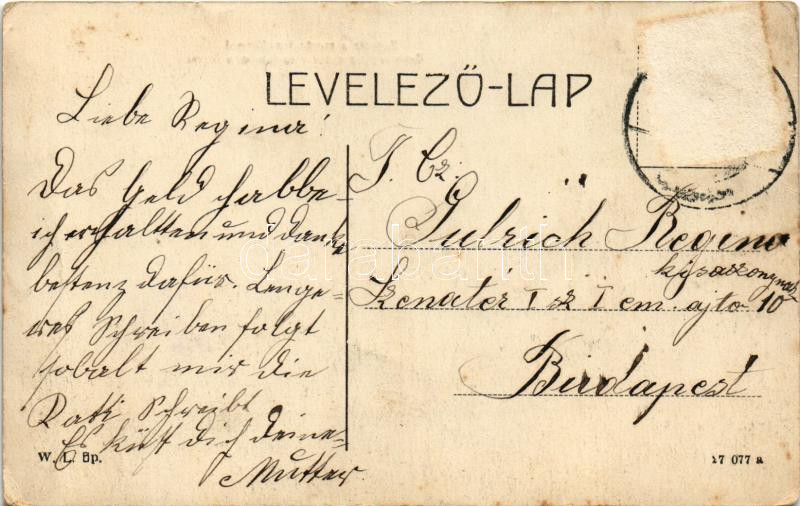 LEVELEZŐ-LAP
Liebe Regina!
Das Geld habbe
ich erhalten und danke
bestenz dafür. Lenge-
res Schreiben folgt
sobalt mir die
Kati Schreibt
Es küst dich deine
Mutter
T. Cz.
Regina
kisasszonynak
Szenatér I sz I em. ajto 10
Budapest
W. L. Bp.
17 077 a